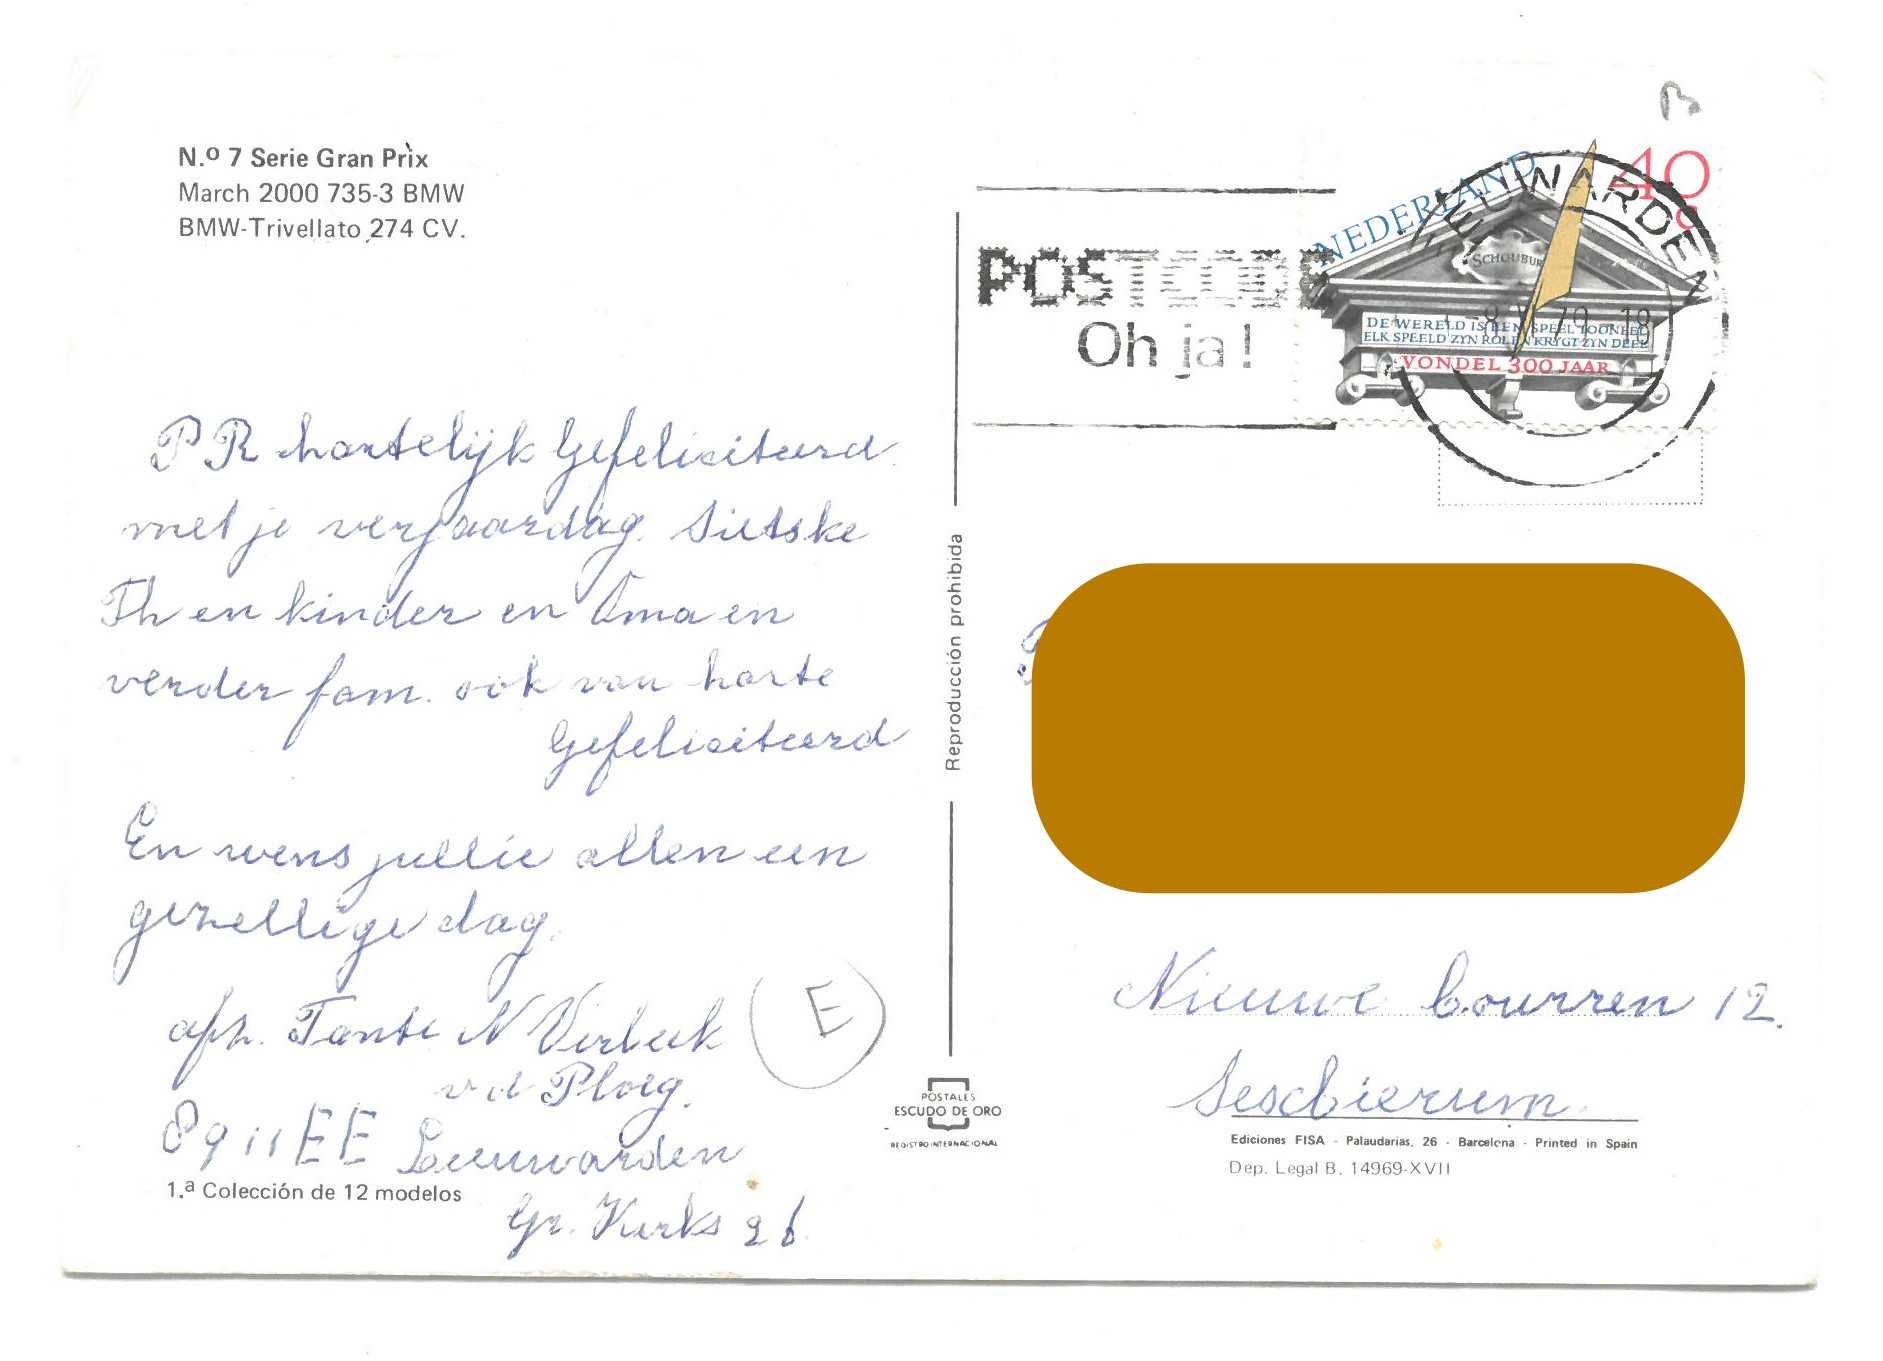 N.º 7 Serie Gran Prix
March 2000 735-3 BMW
BMW-Trivellato 274 CV.
P R hartelijk Gefeliciteerd
met je verjaardag. Sietske
Th en kinder en Oma en
verder fam. ook van harte
Gefeliciteerd
En wens jullie allen een
gezellige dag.
afz. Tante N Verbeek
v d Ploeg.
8911EE Leeuwarden
Gr. Kerks 26
1.ª Colección de 12 modelos
E
Reproducción prohibida
POSTALES
ESCUDO DE ORO
REGISTRO INTERNACIONAL
POSTCODE
Oh ja!
LEEUWARDEN
NEDERLAND
40
c
SCHOUBURG
DE WERELD IS EEN SPEELTOONEEL
ELK SPEELD ZYN ROL EN KRYGT ZYN DEEL
VONDEL 300 JAAR
Nieuwe 12.
Sesbierum.
Ediciones FISA - Palaudarias, 26 - Barcelona - Printed in Spain
Dep. Legal B. 14969-XVII